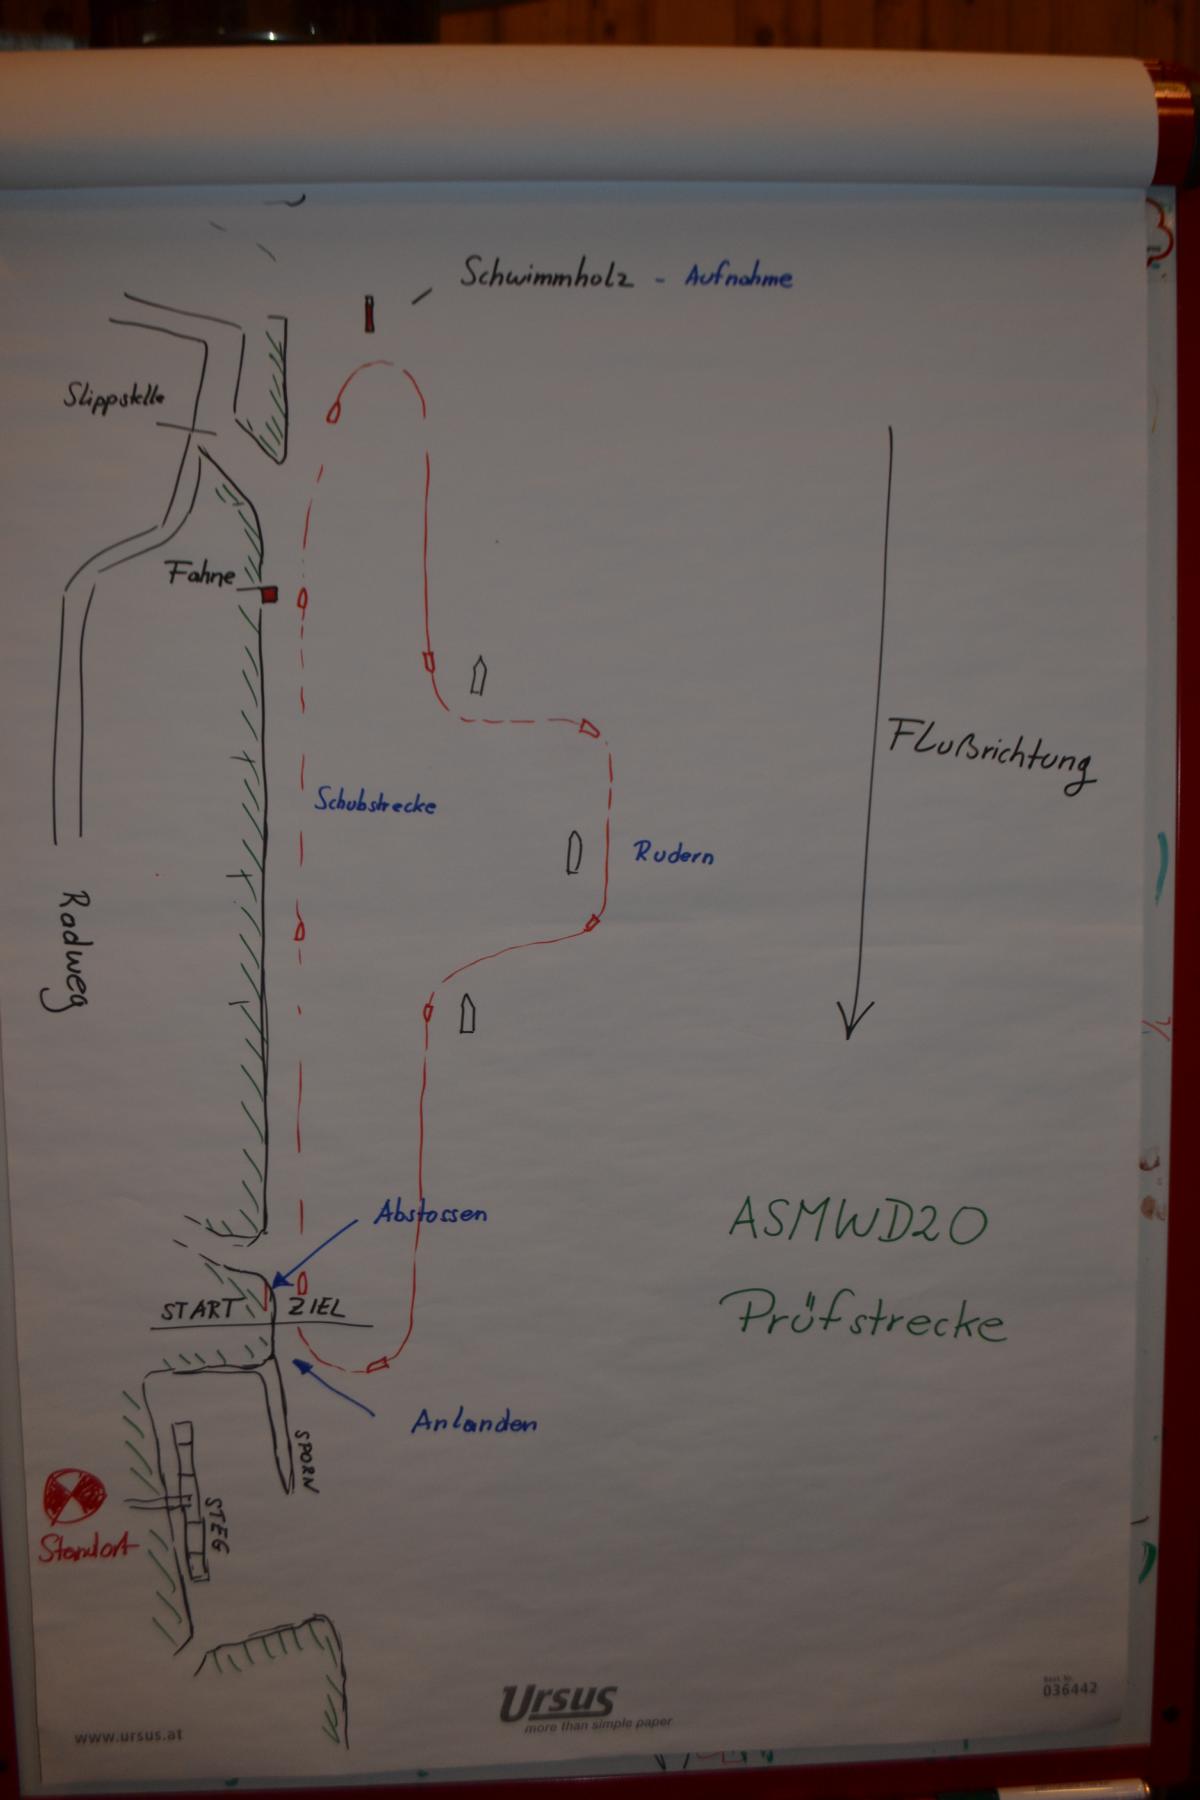 Schwimmholz - Aufnahme
Slippstelle
Fahne
Flußrichtung
Schubstrecke
Rudern
Radweg
Abstossen
ASMWD20
START ZIEL
Prüfstrecke
Anlanden
SPORN
STEG
Standort
Ursus
more than simple paper
www.ursus.at
Best. Nr.
036442